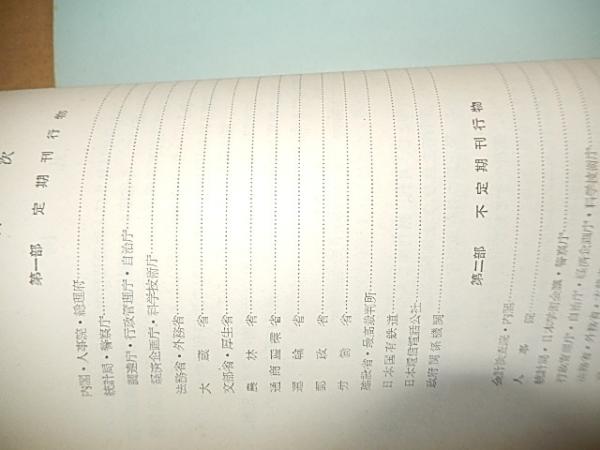 次
第一部　定期刊行物
内閣・人事院・総理府
統計局・警察庁
調達庁・行政管理庁・自治庁
経済企画庁・科学技術庁
法務省・外務省
大蔵省
文部省・厚生省
農林省
通商産業省
運輸省
郵政省
労働省
建設省・最高裁判所
日本国有鉄道
日本電信電話公社
政府関係機関
第二部　不定期刊行物
会計検査院・内閣
人事院
統計局・日本学術会議・警察庁
行政管理庁・自治庁・経済企画庁・科学技術庁
法務省・外務省・